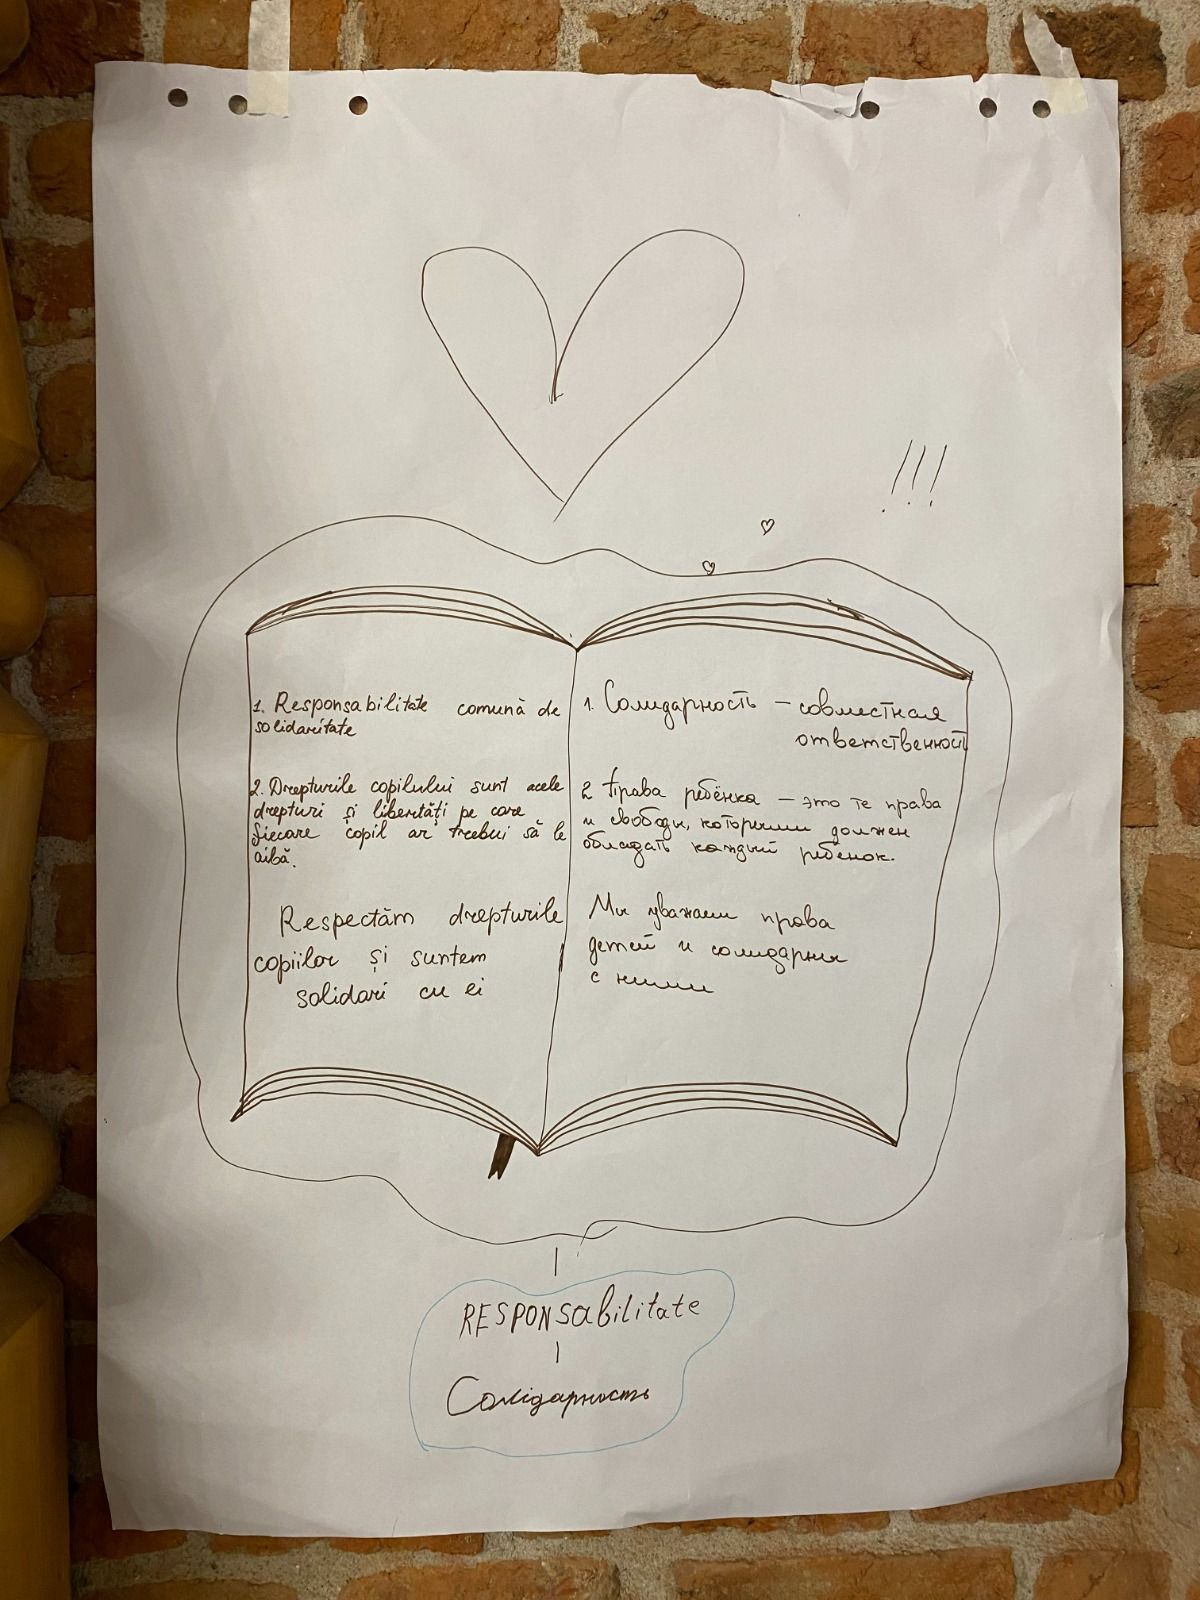 !!!
1. Responsabilitate comună de
solidaritate
2. Drepturile copilului sunt acele
drepturi și libertăți pe care
fiecare copil ar trebui să le
aibă.
Respectăm drepturile
copiilor și suntem
solidari cu ei
1. Солидарность – совместная
ответственност
2 Права ребёнка – это те права
и свободы, которыми должен
обладать каждый ребёнок.
Мы уважаем права
детей и солидарны
с ними
RESPONSabilitate
Солідарность